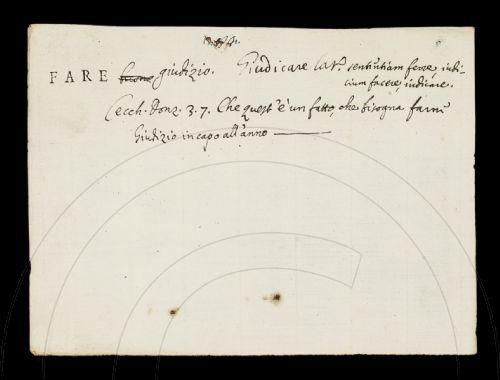 FARE buono giudizio. Giudicare lat. sententiam ferre, iudi-
cium facere, iudicare.
Cecch. Donz. 3. 7. Che quest'è un fatto, che bisogna farni
Giudizio in capo all'anno